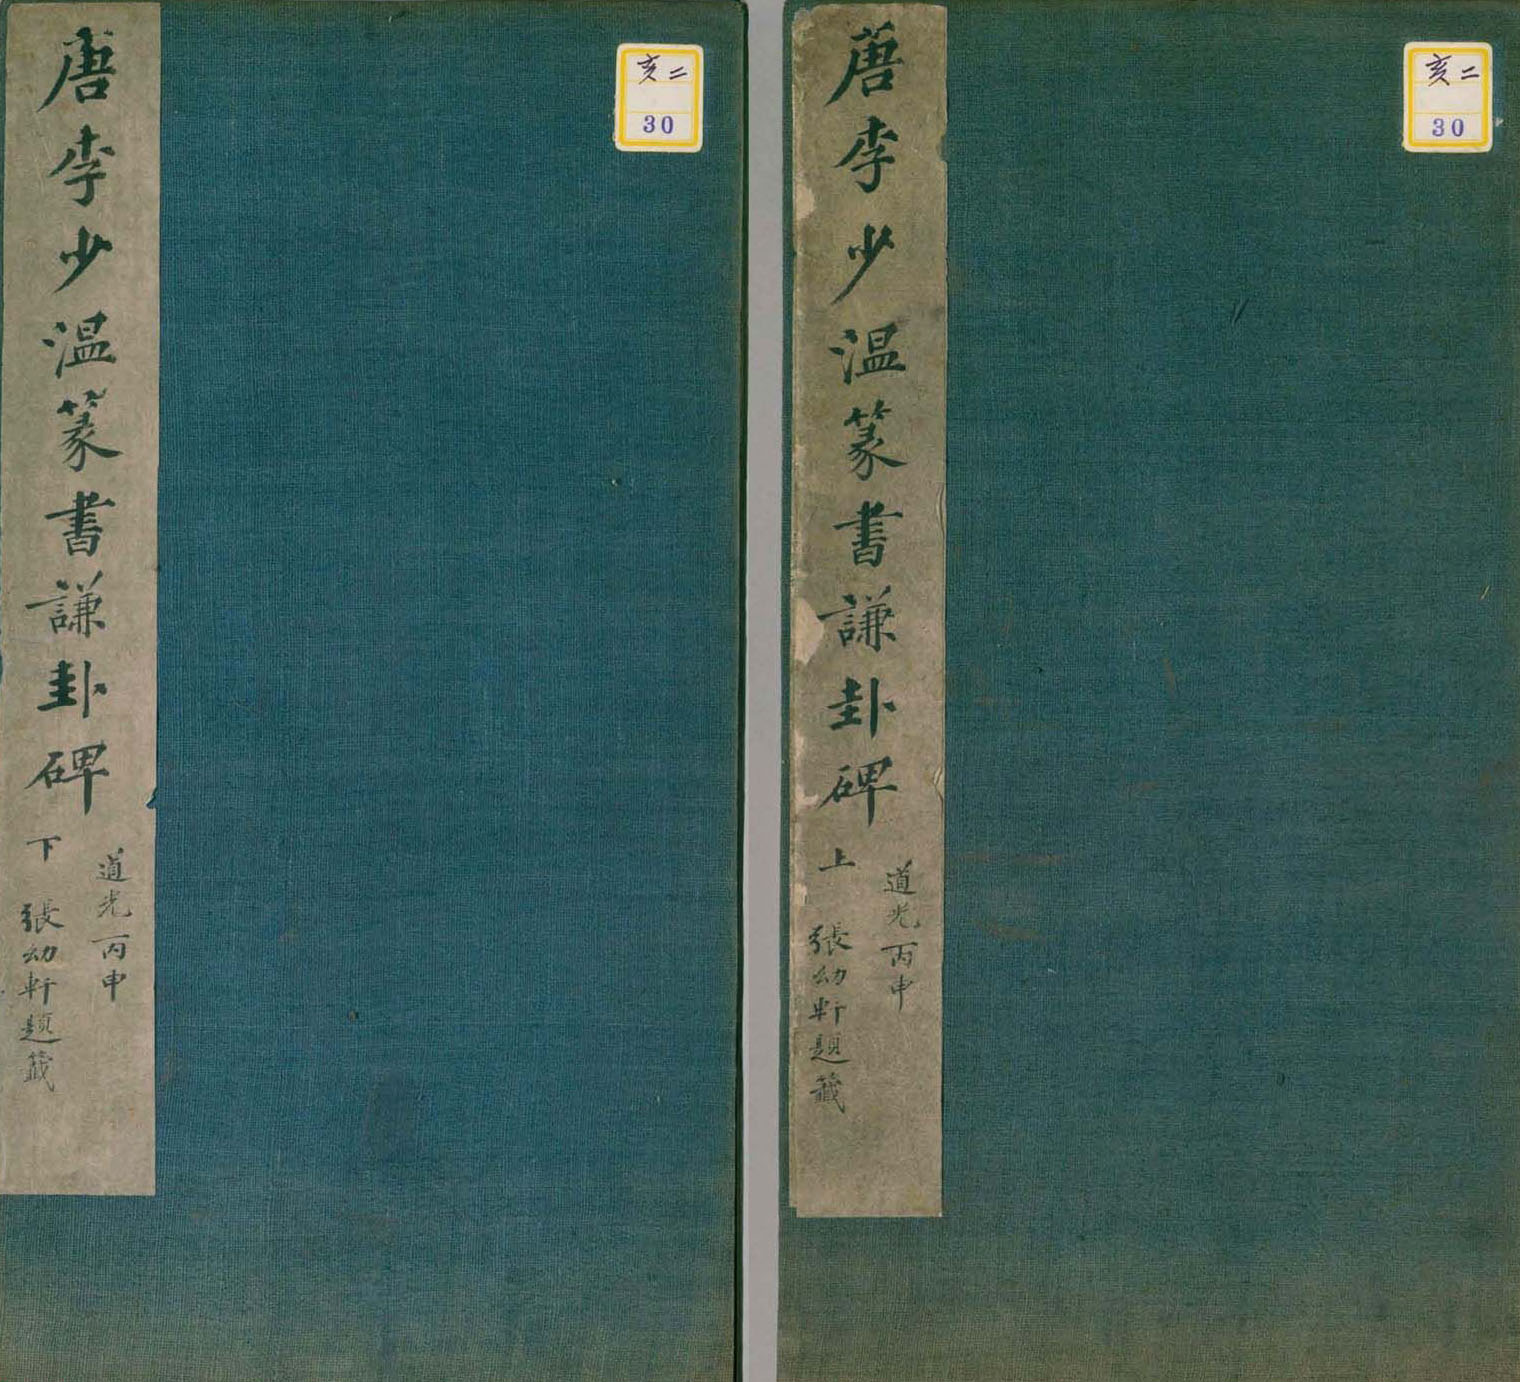 唐李少温篆書謙卦碑上
道光丙申
張幼軒題籤
亥二
30
唐李少温篆書謙卦碑下
道光丙申
張幼軒題籤
亥二
30